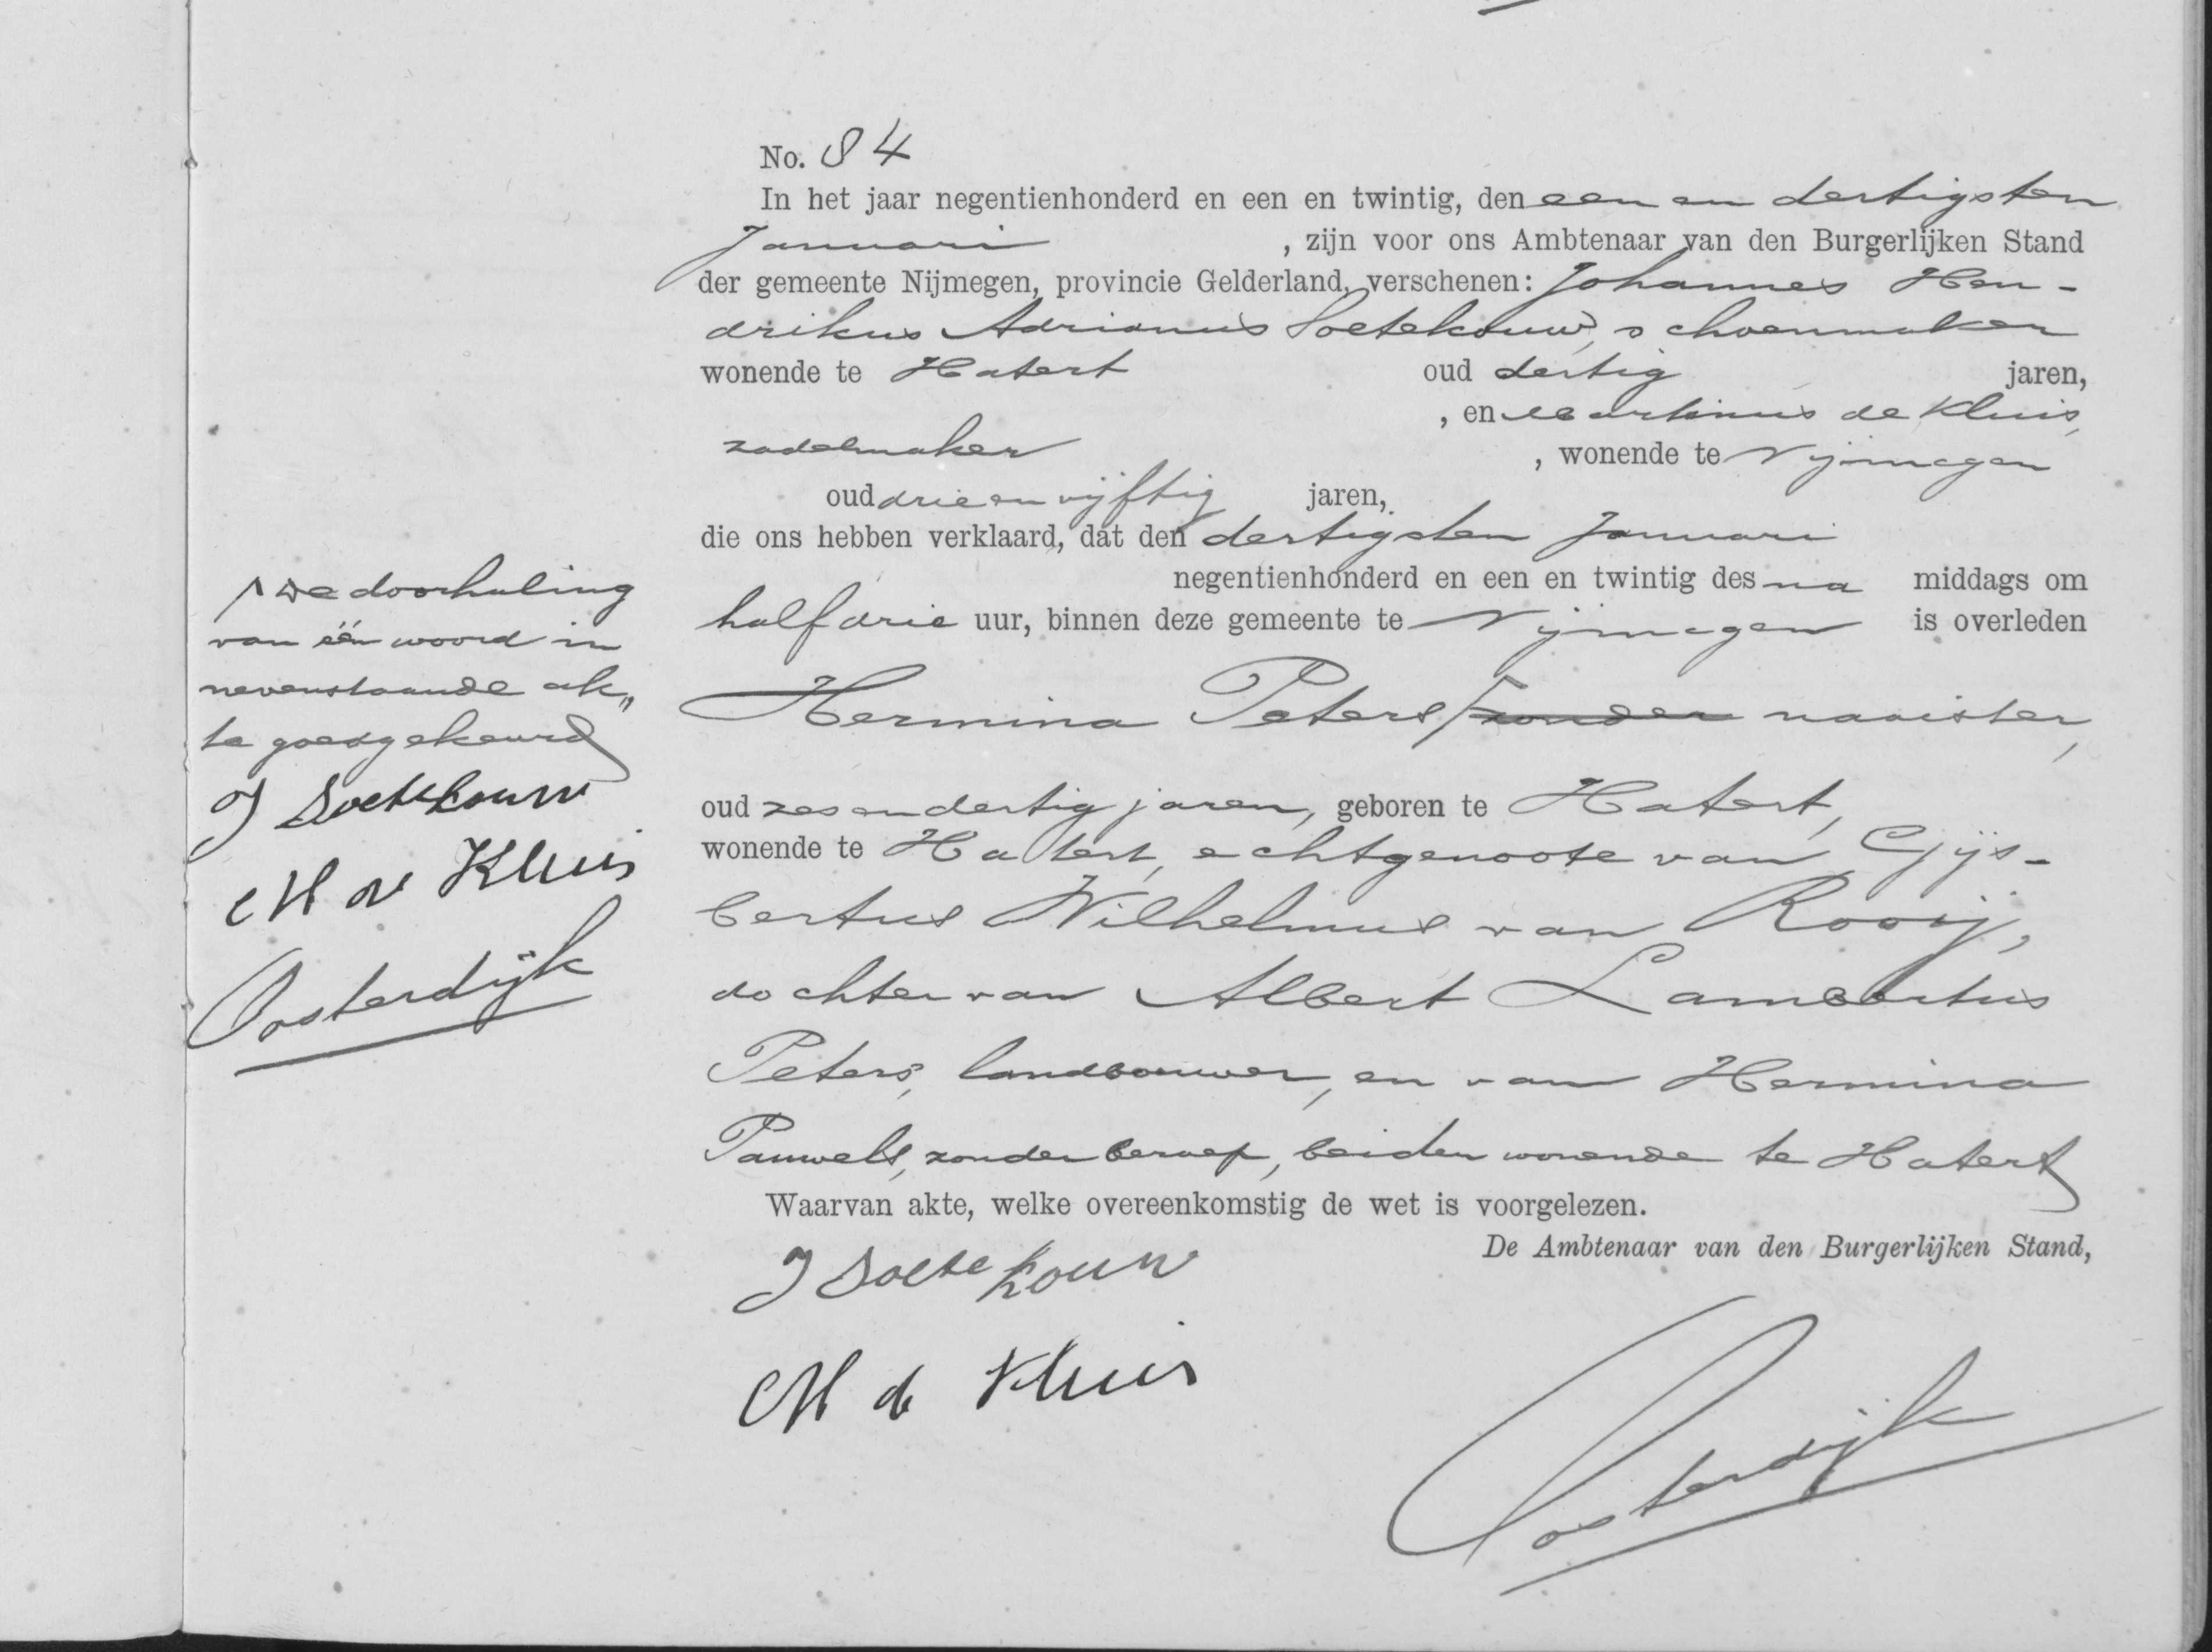 No. 84
In het jaar negentienhonderd en een en twintig, den een en dertigsten
Januari , zijn voor ons Ambtenaar van den Burgerlijken Stand
der gemeente Nijmegen, provincie Gelderland, verschenen: Johannes Hen-
drikus Adrianus Soetekouw, schoenmaker
wonende te Hatert oud dertig jaren,
, en Martinus de Kluis,
zadelmaker , wonende te Nijmegen
oud drie en vijftig jaren,
die ons hebben verklaard, dat den dertigsten Januari
negentienhonderd en een en twintig des na middags om
half drie uur, binnen deze gemeente te Nijmegen is overleden
Hermina Peters, zonder naaister,
oud zes en dertig jaren, geboren te Hatert,
wonende te Hatert, echtgenoote van Gijs-
bertus Wilhelmus van Rooij,
dochter van Albert Lambertus
Peters, landbouwer, en van Hermina
Pauwels, zonder beroep, beiden wonende te Hatert
Waarvan akte, welke overeenkomstig de wet is voorgelezen.
De Ambtenaar van den Burgerlijken Stand,
J Soetekouw
M de Kluis
Oosterdijk
de doorhaling
van één woord in
nevenstaande ak„
te goedgekeurd
J Soetekouw
M de Kluis
Oosterdijk